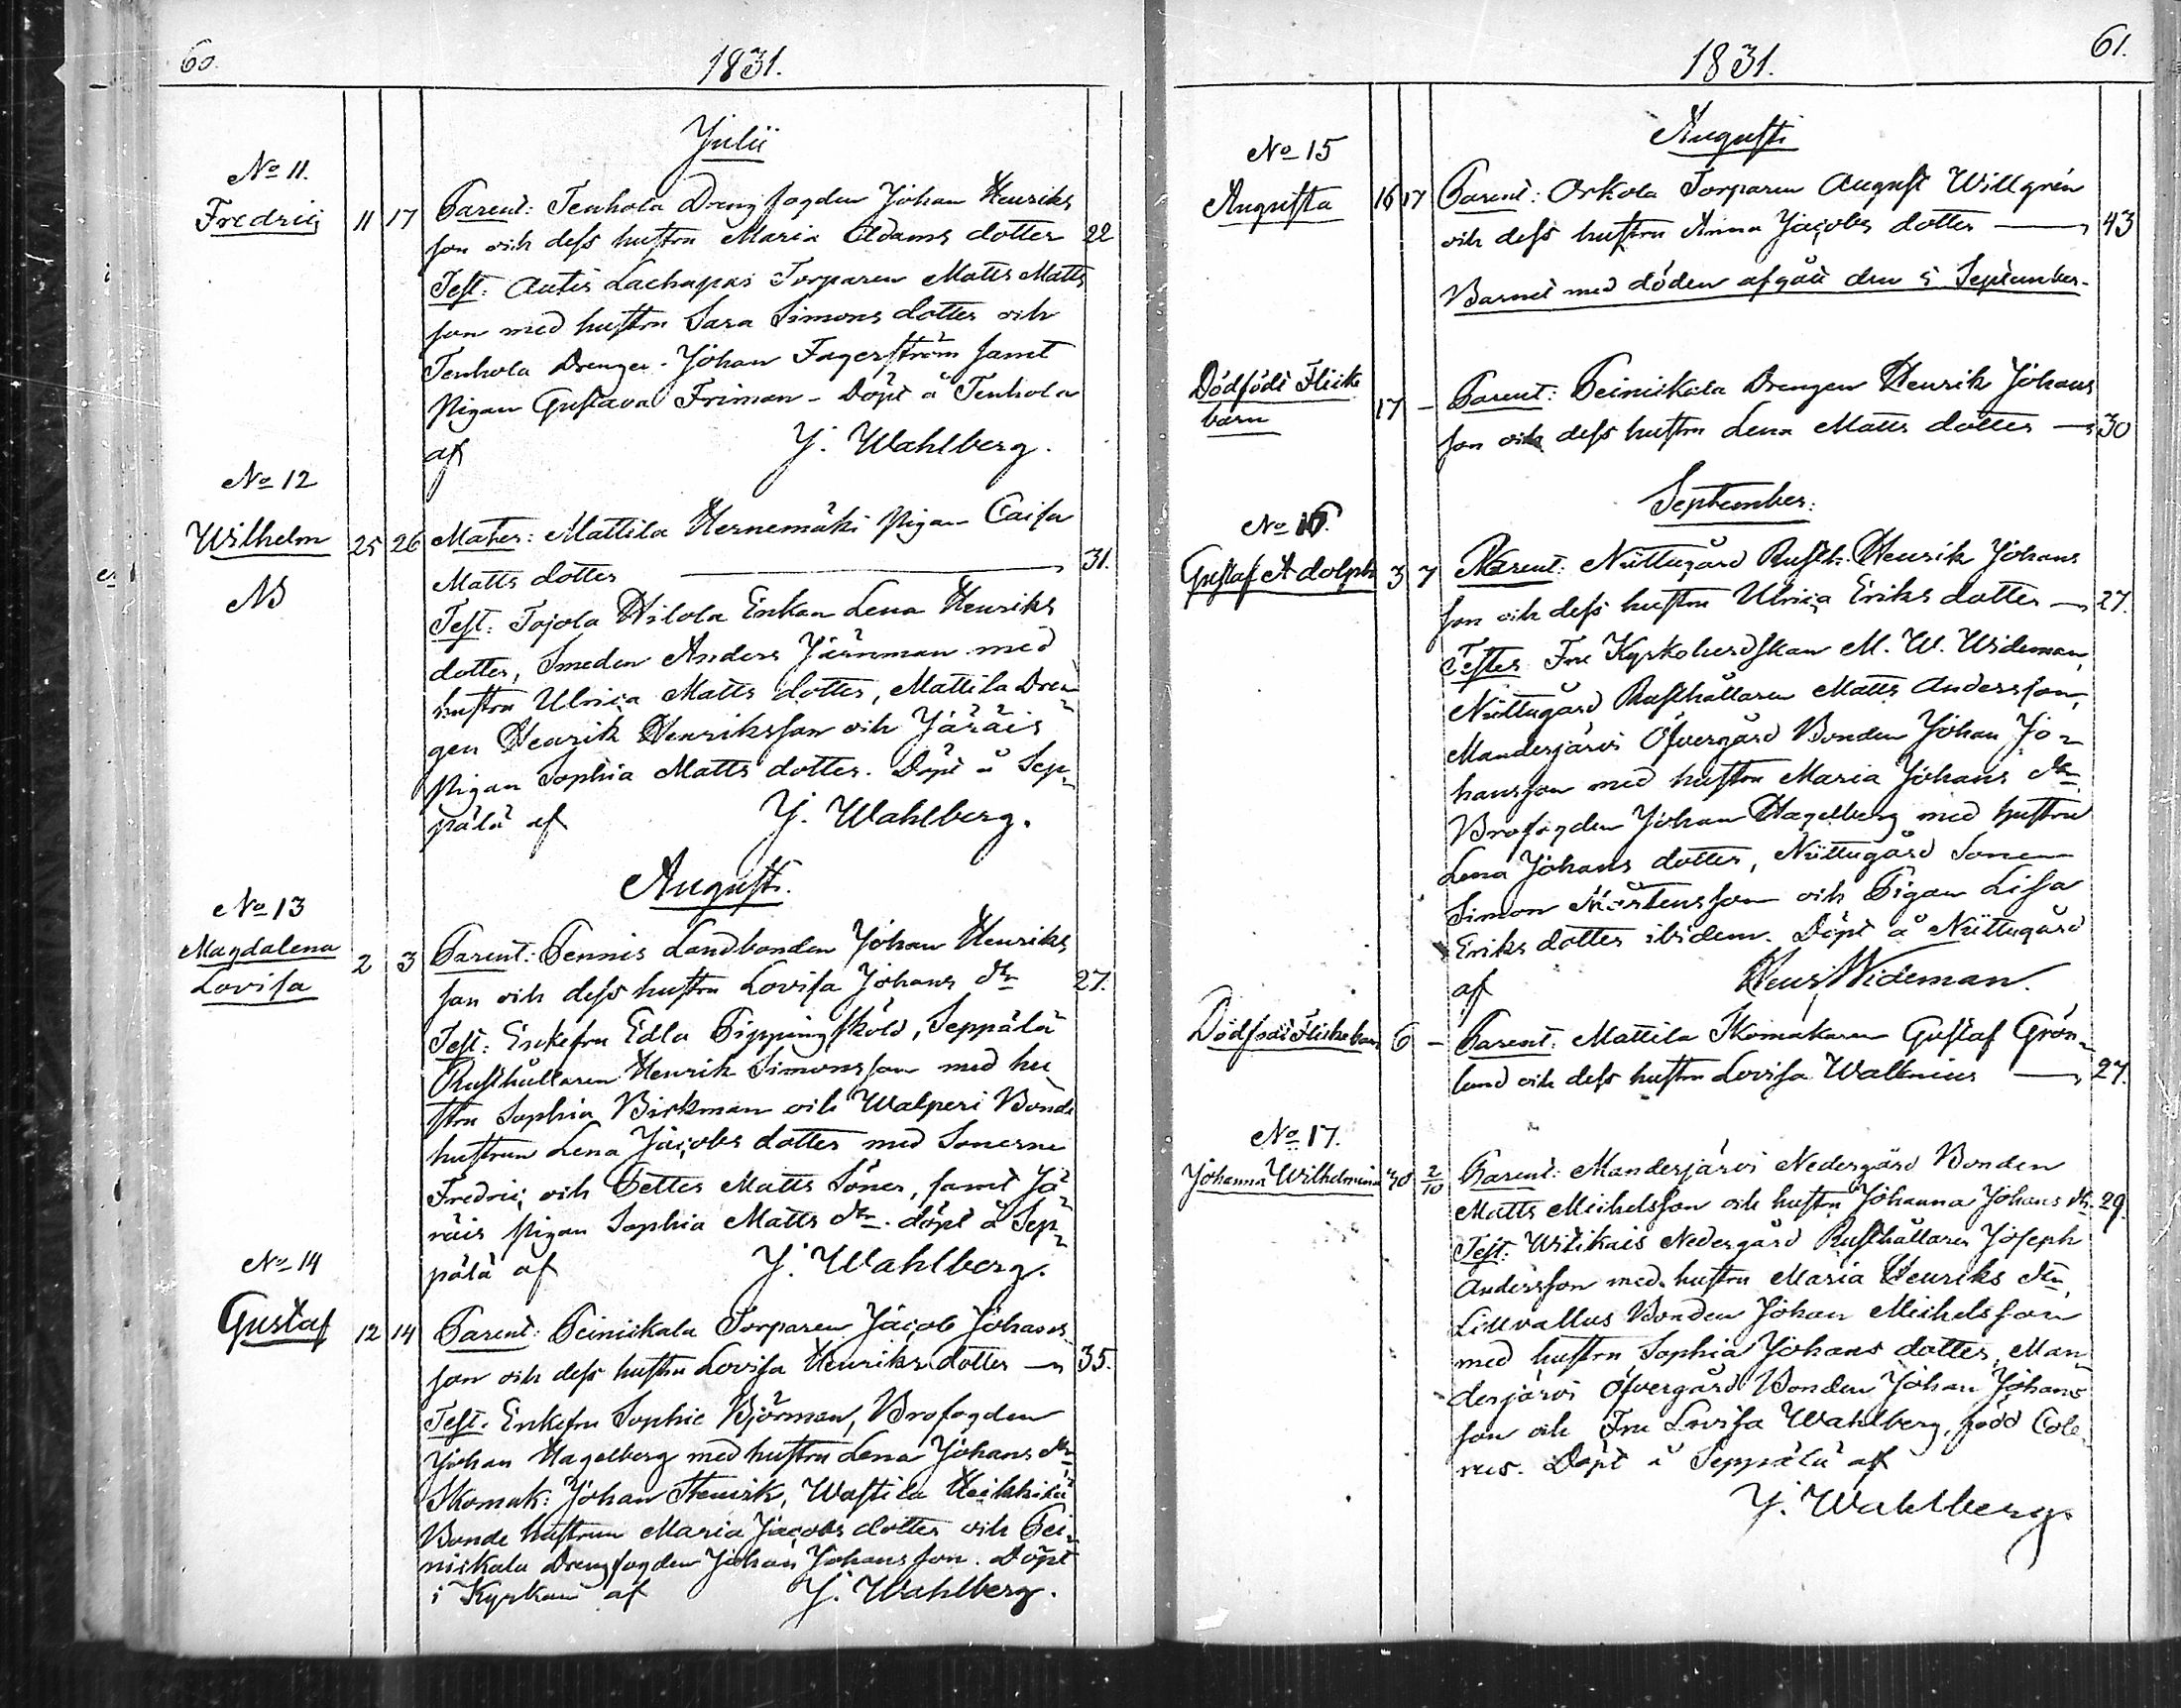 60.
1831.
Julii
No 11.
Fredric 11 17 Parent: Tenhola Drengfogden Johan Henriks
son och dess hustru Maria Adams dotter 22
Test: Autis Lachapas Torparen Matts Matts
son med hustru Sara Simons dotter och
Tenhola Drengen Johan Fagerström samt
Pigan Gustava Friman - Döpt å Tenhola
af J. Wahlberg.
No 12
Wilhelm 25 26 Mater: Mattila Hernemäki Pigan Caisa
Matts dotter 31.
NB
Test: Tojola Hilola Enkan Lena Henriks
dotter, Smeden Anders Järnman med
hustru Ulrica Matts dotter, Mattila Dren
gen Henrik Henriksson och Järäis
Pigan Sophia Matts dotter. Döpt å Sep
pälä af J. Wahlberg.
Augusti.
No 13
Magdalena Lovisa 2 3 Parent: Pennis Landbonden Johan Henriks
son och dess hustru Lovisa Johans dtr 27.
Test: Enkefru Edla Pippingsköld, Seppälä
Rusthållaren Henrik Simonsson med hu
stru Sophia Birkman och Walperi Bonde
hustrun Lena Jacobs dotter med Sonerne
Fredric och Petter Matts Söner, samt Jä
räis Pigan Sophia Matts dtr. döpt å Sep
pälä af J. Wahlberg.
No 14
Gustaf 12 14 Parent: Peiniskala Torparen Jacob Johans
son och dess hustru Lovisa Henriks dotter 35.
Test. Enkefru Sophie Björman, Brofogden
Johan Hagelberg med hustru Lena Johans dtr
Skomak: Johan Henrik, Wastila Heikkilä
Bonde hustrun Maria Jacobs dotter och Pei
niskala Drengfogden Johan Johansson. Döpt
i Kyrkan af J. Wahlberg.
1831.
61.
Augusti
No 15
Augusta 16 17 Parent: Orkola Torparen August Willgrén
och dess hustru Anna Jacobs dotter 43
Barnet med döden afgått den 5 September.
Dödfödt Flicke
barn 17 - Parent: Peiniskala Drengen Henrik Johans
son och dess hustru Lena Matts dotter 30
September.
No 16.
Gustaf Adolph 3 7 Parent: Nuttugård Rusth. Henrik Johans
son och dess hustru Ulrica Eriks dotter 27.
Testes Fru Kyrkoherdskan M. W. Wideman,
Nuttugård Rusthållaren Matts Andersson,
Manderjärvi Öfvergård Bonden Johan Jo
hansson med hustru Maria Johans dtr
Brofogden Johan Hagelberg med hustru
Lena Johans dotter, Nuttugård Sonen
Simon Mårtensson och Pigan Lisa
Eriks dotter ibidem. Döpt å Nuttugård
af Henr Wideman.
Dödfödt Flickebarn 6 - Parent. Mattila Skomakaren Gustaf Grön
lund och dess hustru Lovisa Wallenius 27.
No 17.
Johanna Wilhelmina 30 2/10 Parent: Manderjärvi Nedergård Bonden
Matts Michelsson och hustru Johanna Johans dtr. 29.
Test: Witikais Nedergård Rusthållaren Joseph
Andersson med hustru Maria Henriks dtr,
Lillvallus Bonden Johan Michelsson
med hustru Sophia Johans dotter, Man
derjärvi Öfvergård Bonden Johan Johans
son och Fru Lovisa Wahlberg, född Cole
rus. Döpt å Seppälä af
J. Wahlberg.